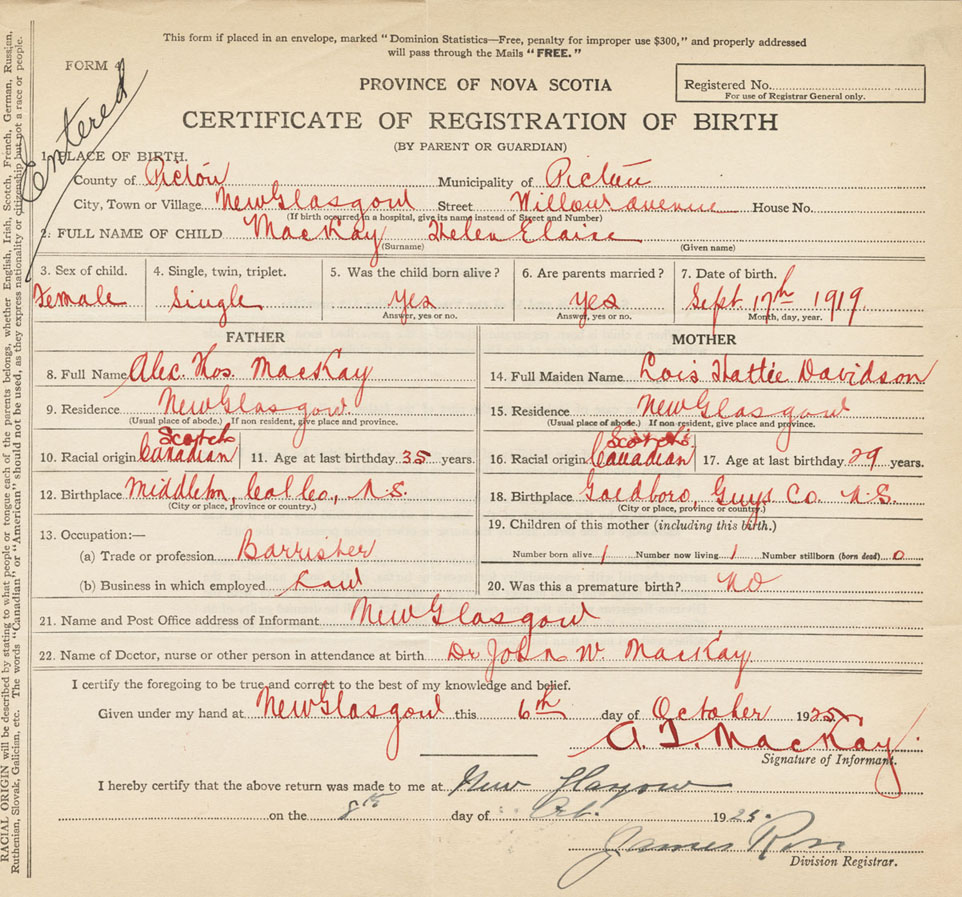 This form if placed in an envelope, marked "Dominion Statistics—Free, penalty for improper use $300," and properly addressed
will pass through the Mails "FREE."
FORM 4
Entered
PROVINCE OF NOVA SCOTIA
Registered No.
For use of Registrar General only.
CERTIFICATE OF REGISTRATION OF BIRTH
(BY PARENT OR GUARDIAN)
1. PLACE OF BIRTH.
County of Pictou Municipality of Pictou
City, Town or Village New Glasgow Street Willow avenue House No.
(If birth occurred in a hospital, give its name instead of Street and Number)
2. FULL NAME OF CHILD MacKay Helen Elaise
(Surname) (Given name)
3. Sex of child. 4. Single, twin, triplet. 5. Was the child born alive? 6. Are parents married? 7. Date of birth.
Female Single Yes Yes Sept. 17th 1919
Answer, yes or no. Answer, yes or no. Month, day, year.
FATHER MOTHER
8. Full Name Alec. Thos. MacKay 14. Full Maiden Name Lois Hattie Davidson
9. Residence New Glasgow. 15. Residence New Glasgow
(Usual place of abode.) If non resident, give place and province. (Usual place of abode.) If non-resident, give place and province.
Scotch
10. Racial origin Canadian 11. Age at last birthday 35 years. 16. Racial origin Canadian 17. Age at last birthday 29 years.
12. Birthplace Middleton, Col Co., N.S. 18. Birthplace Goldboro, Guys Co. N.S.
(City or place, province or country.) (City or place, province or country.)
13. Occupation:— 19. Children of this mother (including this birth.)
(a) Trade or profession Barrister Number born alive 1 Number now living 1 Number stillborn (born dead) 0
(b) Business in which employed Law 20. Was this a premature birth? No
21. Name and Post Office address of Informant New Glasgow
22. Name of Doctor, nurse or other person in attendance at birth Dr John W. MacKay
I certify the foregoing to be true and correct to the best of my knowledge and belief.
Given under my hand at New Glasgow this 6th day of October 1925
A. T. MacKay
Signature of Informant.
I hereby certify that the above return was made to me at New Glasgow
on the 8th day of Oct. 1925.
James Ross
Division Registrar.
RACIAL ORIGIN will be described by stating to what people or tongue each of the parents belongs, whether English, Irish, Scotch, French, German, Russian,
Ruthenian, Slovak, Galician, etc. The words "Canadian" or "American" should not be used, as they express nationality or citizenship but not a race or people.